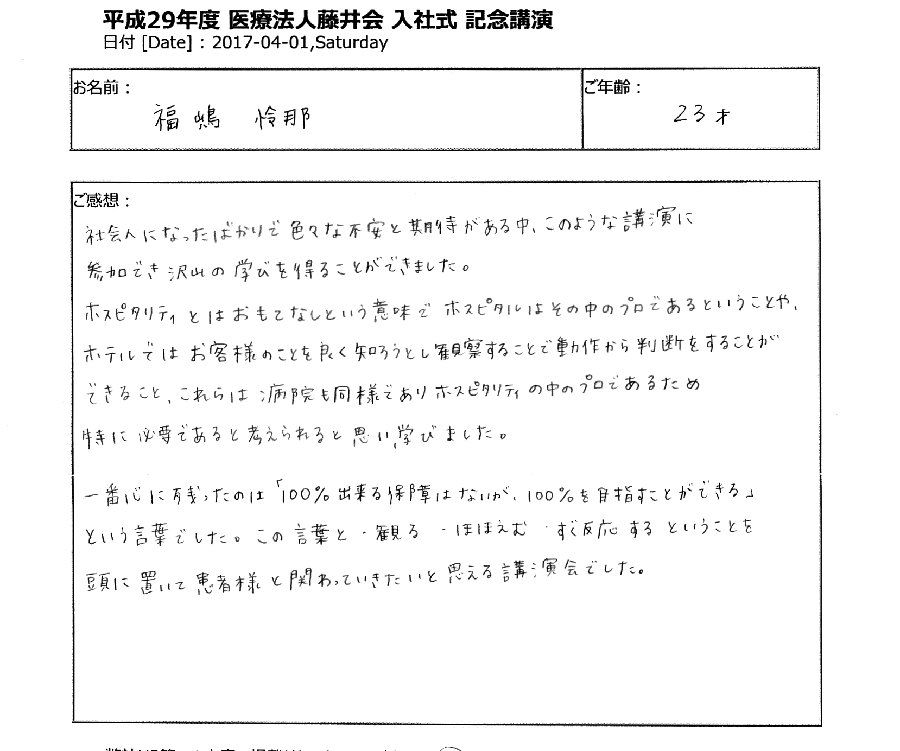 平成29年度 医療法人藤井会 入社式 記念講演
日付 [Date] : 2017-04-01,Saturday
お名前：
福嶋 怜那
ご年齢：
23才
ご感想：
社会人になったばかりで色々な不安と期待がある中、このような講演に
参加でき沢山の学びを得ることができました。
ホスピタリティとはおもてなしという意味でホスピタルはその中のプロであるということや、
ホテルではお客様のことを良く知ろうとし観察することで動作から判断をすることが
できること、これらは病院も同様でありホスピタリティの中のプロであるため
特に必要であると考えられると思い、学びました。
一番心に残ったのは「100%出来る保障はないが、100%を目指すことができる」
という言葉でした。この言葉と・観る ・ほほえむ ・すぐ反応 するということを
頭に置いて患者様と関わっていきたいと思える講演会でした。